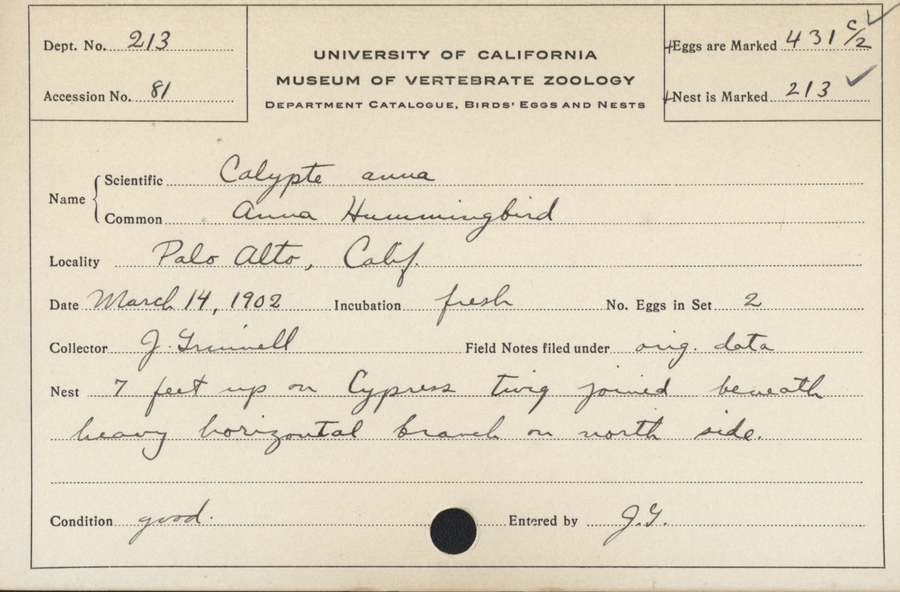 Dept. No. 213
Accession No. 81
UNIVERSITY OF CALIFORNIA
MUSEUM OF VERTEBRATE ZOOLOGY
DEPARTMENT CATALOGUE, BIRDS' EGGS AND NESTS
+Eggs are Marked 431 c/2 ✓
+Nest is Marked 213 ✓
Name { Scientific Calypte anna
Common Anna Hummingbird
Locality Palo Alto, Calif.
Date March 14, 1902 Incubation fresh No. Eggs in Set 2
Collector J. Grinnell Field Notes filed under orig. data
Nest 7 feet up on Cypress twig joined beneath
heavy horizontal branch on north side.
Condition good. Entered by J.G.